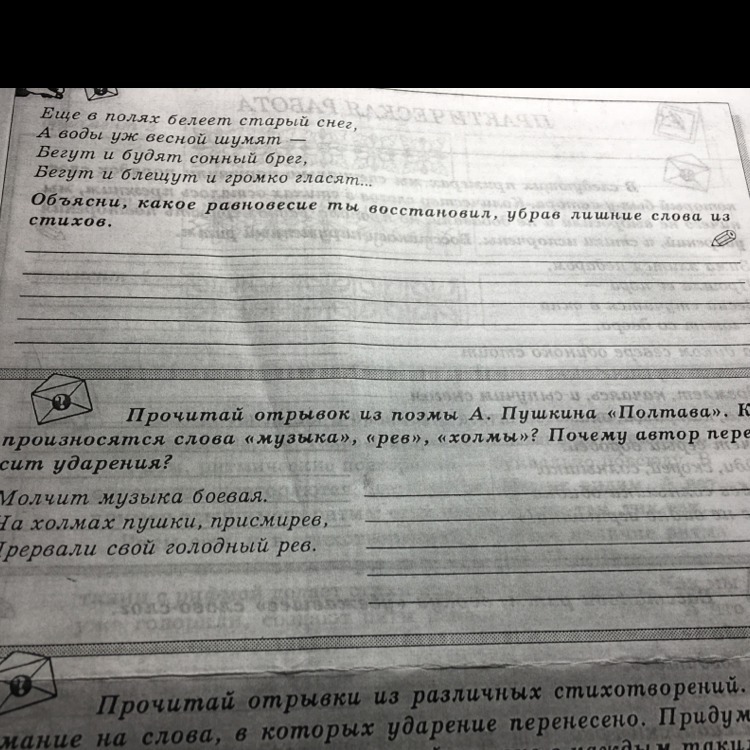 Еще в полях белеет старый снег,
А воды уж весной шумят —
Бегут и будят сонный брег,
Бегут и блещут и громко гласят...
Объясни, какое равновесие ты восстановил, убрав лишние слова из
стихов.
Прочитай отрывок из поэмы А. Пушкина «Полтава». К
произносятся слова «музыка», «рев», «холмы»? Почему автор пере
сит ударения?
Молчит музыка боевая.
На холмах пушки, присмирев,
Прервали свой голодный рев.
Прочитай отрывки из различных стихотворений.
мание на слова, в которых ударение перенесено. Придум